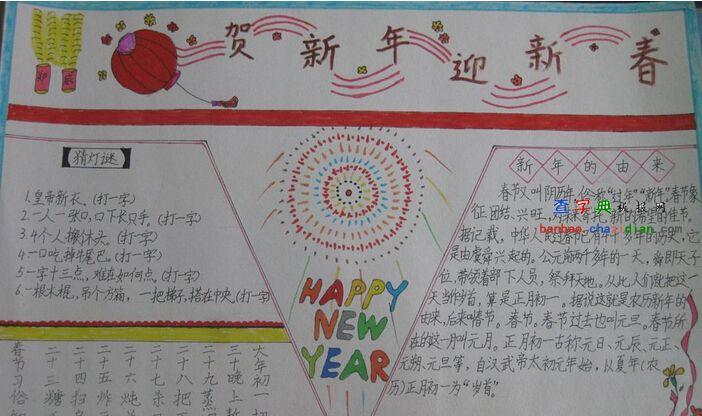 贺新年迎新春
猜灯谜
1.皇帝新衣。(打一字)
2.一人一张口,口下长只手。(打一字)
3.4个人搬个木头。(打一字)
4.一口吃掉牛尾巴。(打一字)
5.一字十三点,难在如何点。(打一字)
6.一根木棍,吊个方箱,一把梯子,搭在中央。(打一字)
HAPPY
NEW
YEAR
新年的由来
春节又叫阴历年,俗称“过年”“新年”春节象
征团结、兴旺,
查字典 板报网
banbao.chazidian.com
据记载,中华人民过春节已有4千多年的历史,它
是由虞舜兴起的。公元前两千多年的一天,舜即天子
位,带领着部下人员,祭拜天地。从此人们就把这一
天当作岁首,算是正月初一。据说这就是农历新年的
由来,后来叫春节。春节。春节过去也叫元旦。春节所
在的这一月叫元月。正月初一古称元日、元辰、元正、
元朔、元旦等,自汉武帝太初元年始,以夏年(农
历)正月初一为“岁首”。
春 二 二 二 二 二 二 二 三 大
节 十 十 十 十 十 十 十 十 年
习 三 四 五 六 七 八 九 晚 初
俗 糖 扫 炸 炖 杀 把 蒸 上 一